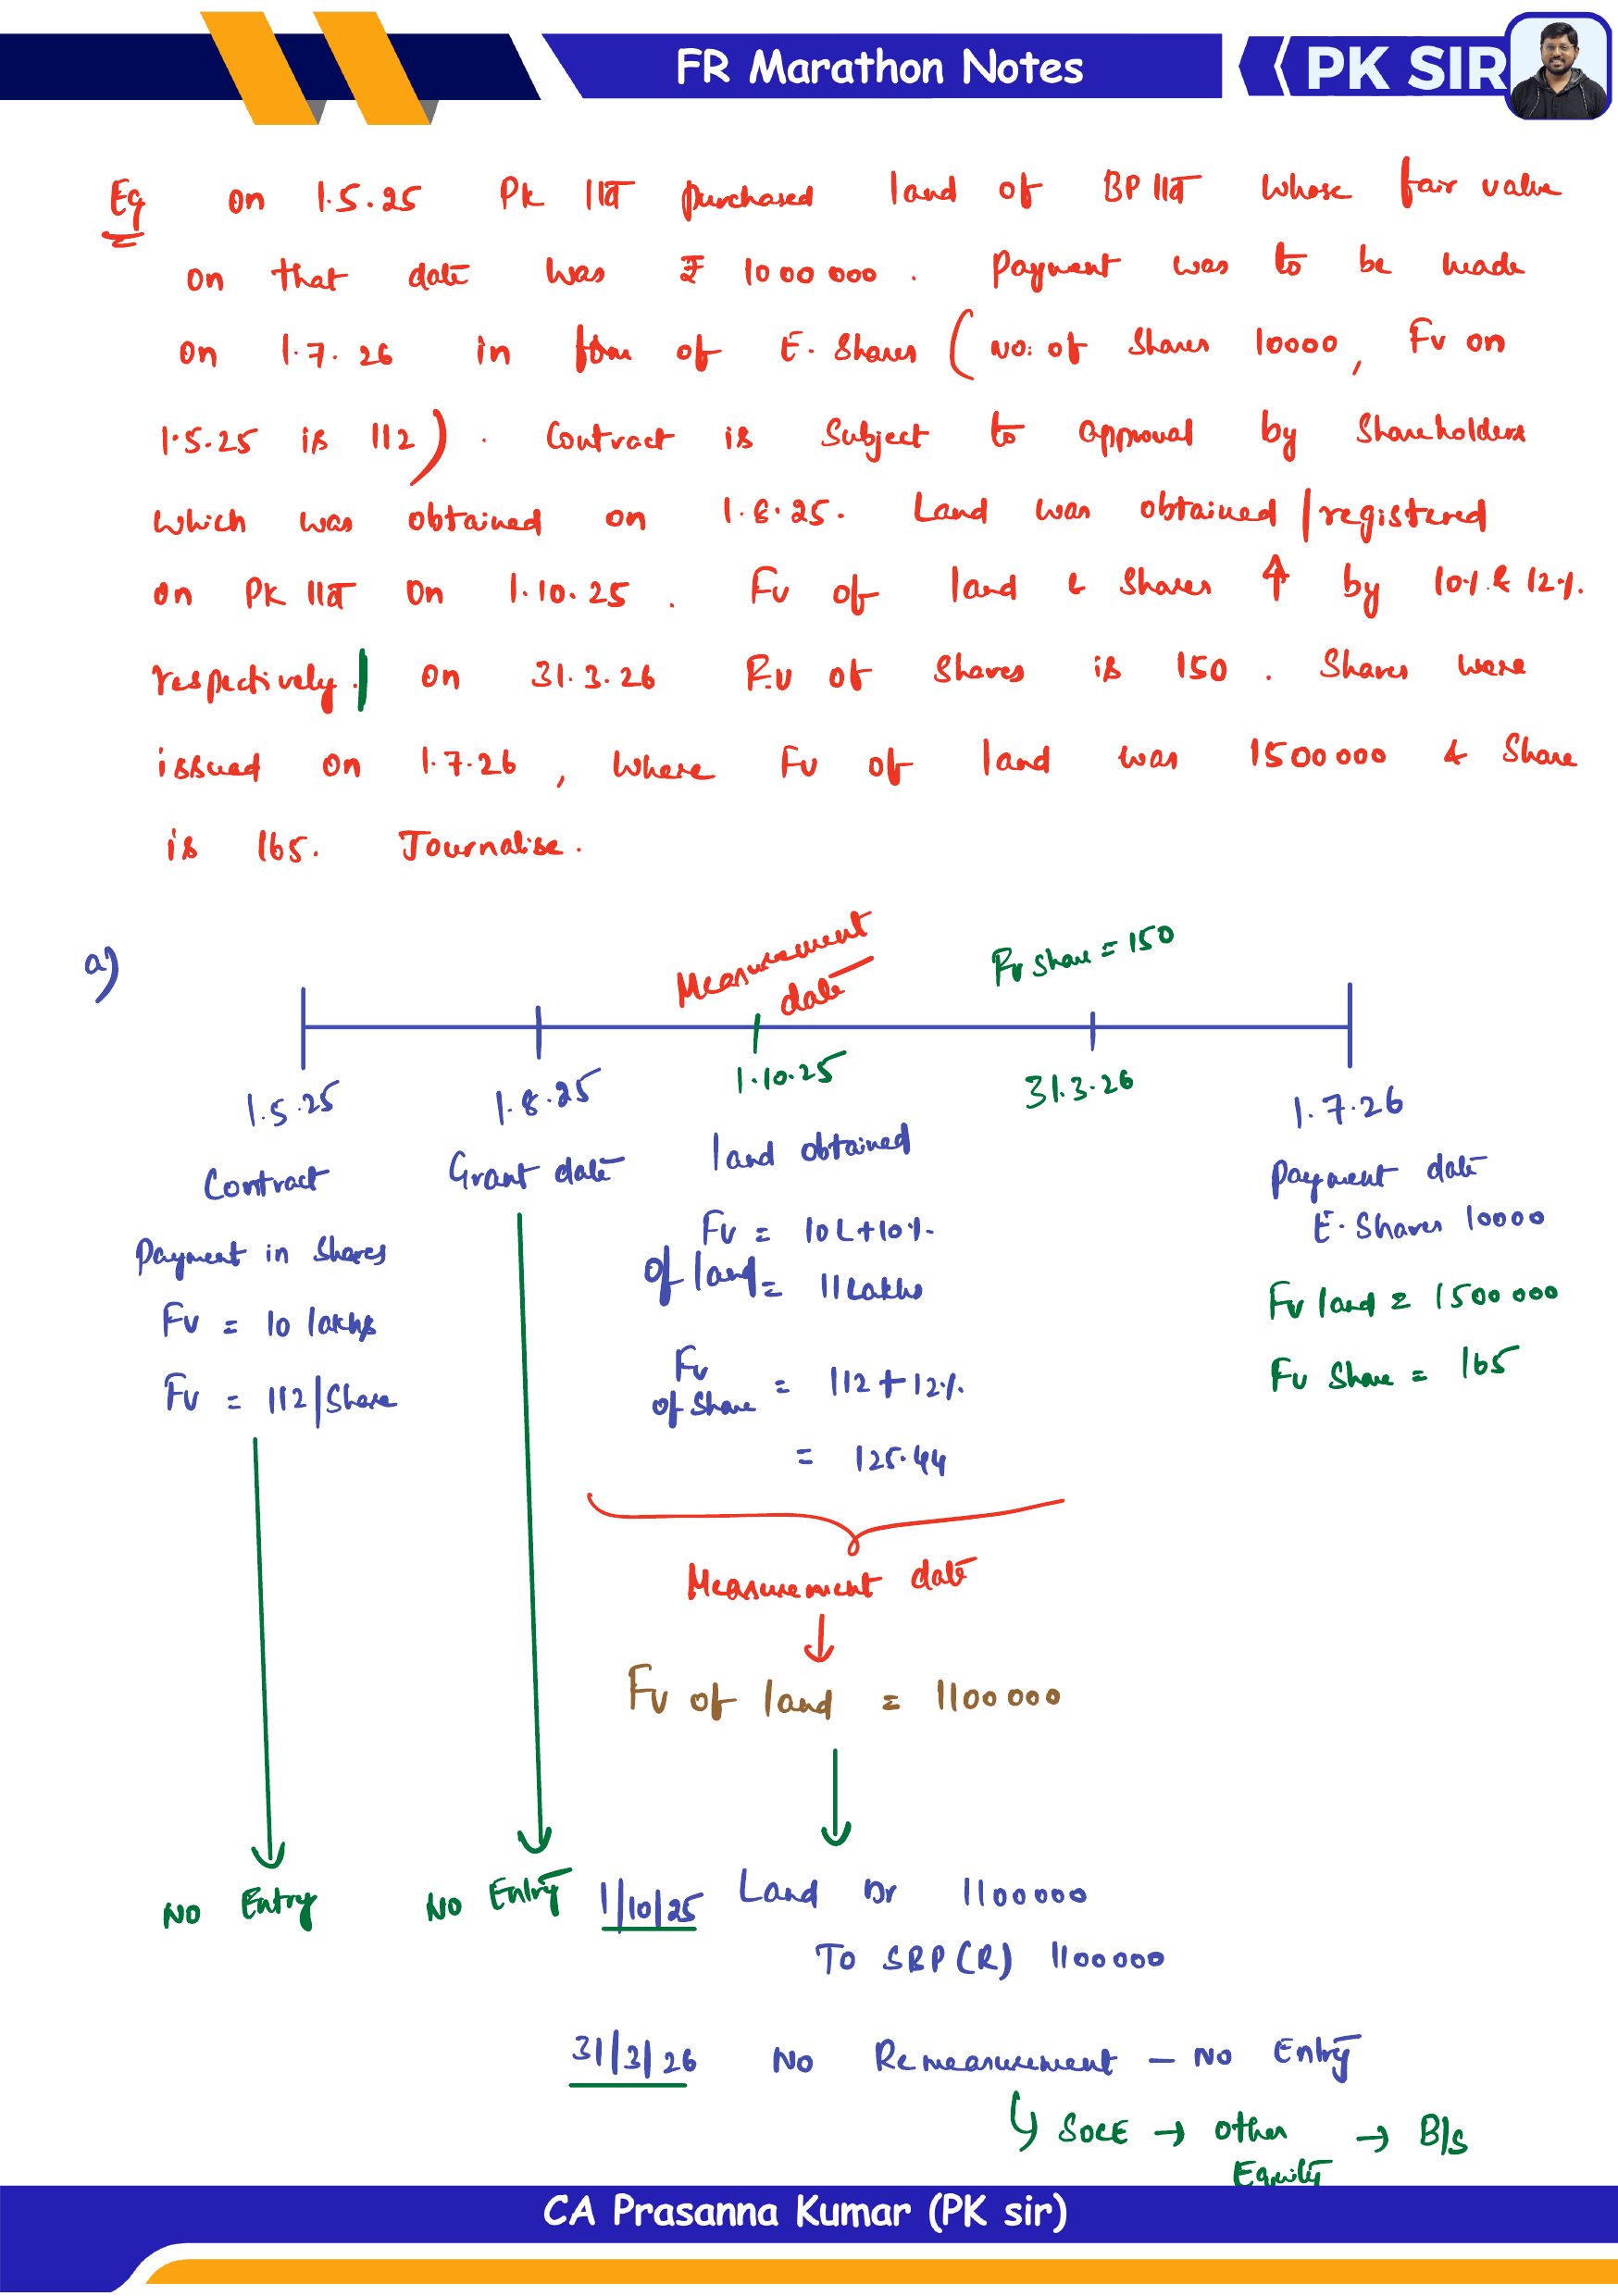 FR Marathon Notes
PK SIR
Eg on 1.5.25 Pk ltd purchased land of BP ltd whose fair value
on that date was ₹ 1000000. Payment was to be made
on 1.7.26 in form of E. Shares (no: of shares 10000, Fv on
1.5.25 is 112). Contract is subject to approval by Shareholders
which was obtained on 1.8.25. Land was obtained/registered
on PK ltd on 1.10.25. Fv of land & shares ↑ by 10% & 12%.
respectively. On 31.3.26 Fv of shares is 150. Shares were
issued on 1.7.26, where Fv of land was 1500000 & Share
is 165. Journalise.
a)
Measurement date
Fv share = 150
1.5.25 1.8.25 1.10.25 31.3.26 1.7.26
Contract
Payment in shares
Fv = 10 lakhs
Fv = 112/share
Grant date
land obtained
Fv of land = 10L+10%.
= 11 Lakhs
Fv of share = 112+12%.
= 125.44
Payment date
E. Shares 10000
Fv land = 1500000
Fv share = 165
Measurement date
Fv of land = 1100000
No Entry
No Entry
1/10/25 Land Dr 1100000
To SBP(R) 1100000
31/3/26 No Remeasurement – No Entry
↳ SOCE → Other Equity → B/S
CA Prasanna Kumar (PK sir)